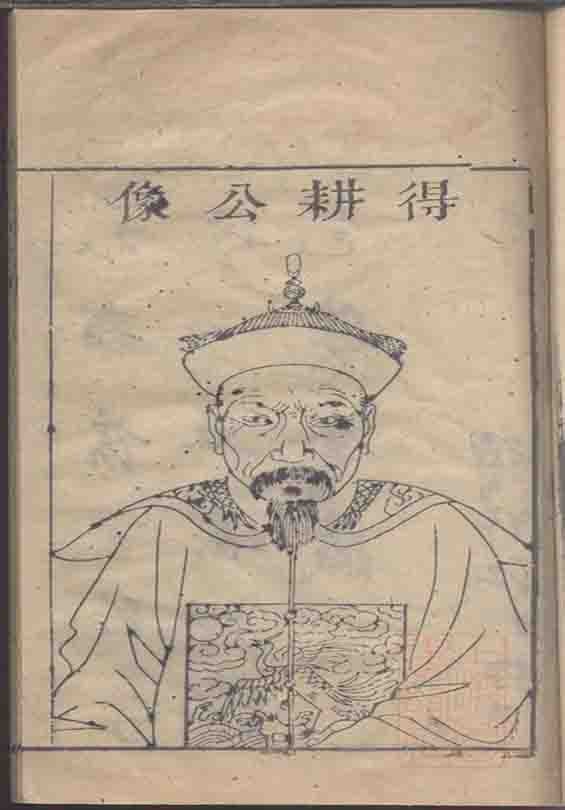 得耕公像